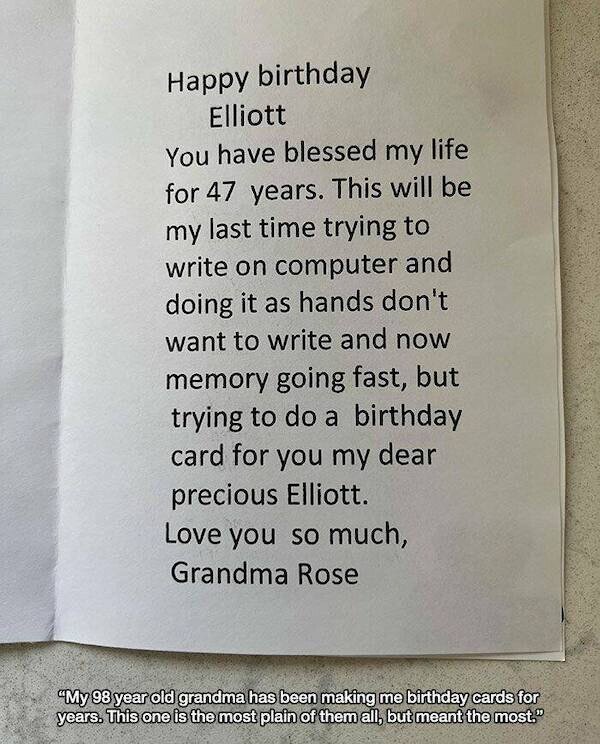 Happy birthday
Elliott
You have blessed my life
for 47 years. This will be
my last time trying to
write on computer and
doing it as hands don't
want to write and now
memory going fast, but
trying to do a birthday
card for you my dear
precious Elliott.
Love you so much,
Grandma Rose
“My 98 year old grandma has been making me birthday cards for
years. This one is the most plain of them all, but meant the most.”